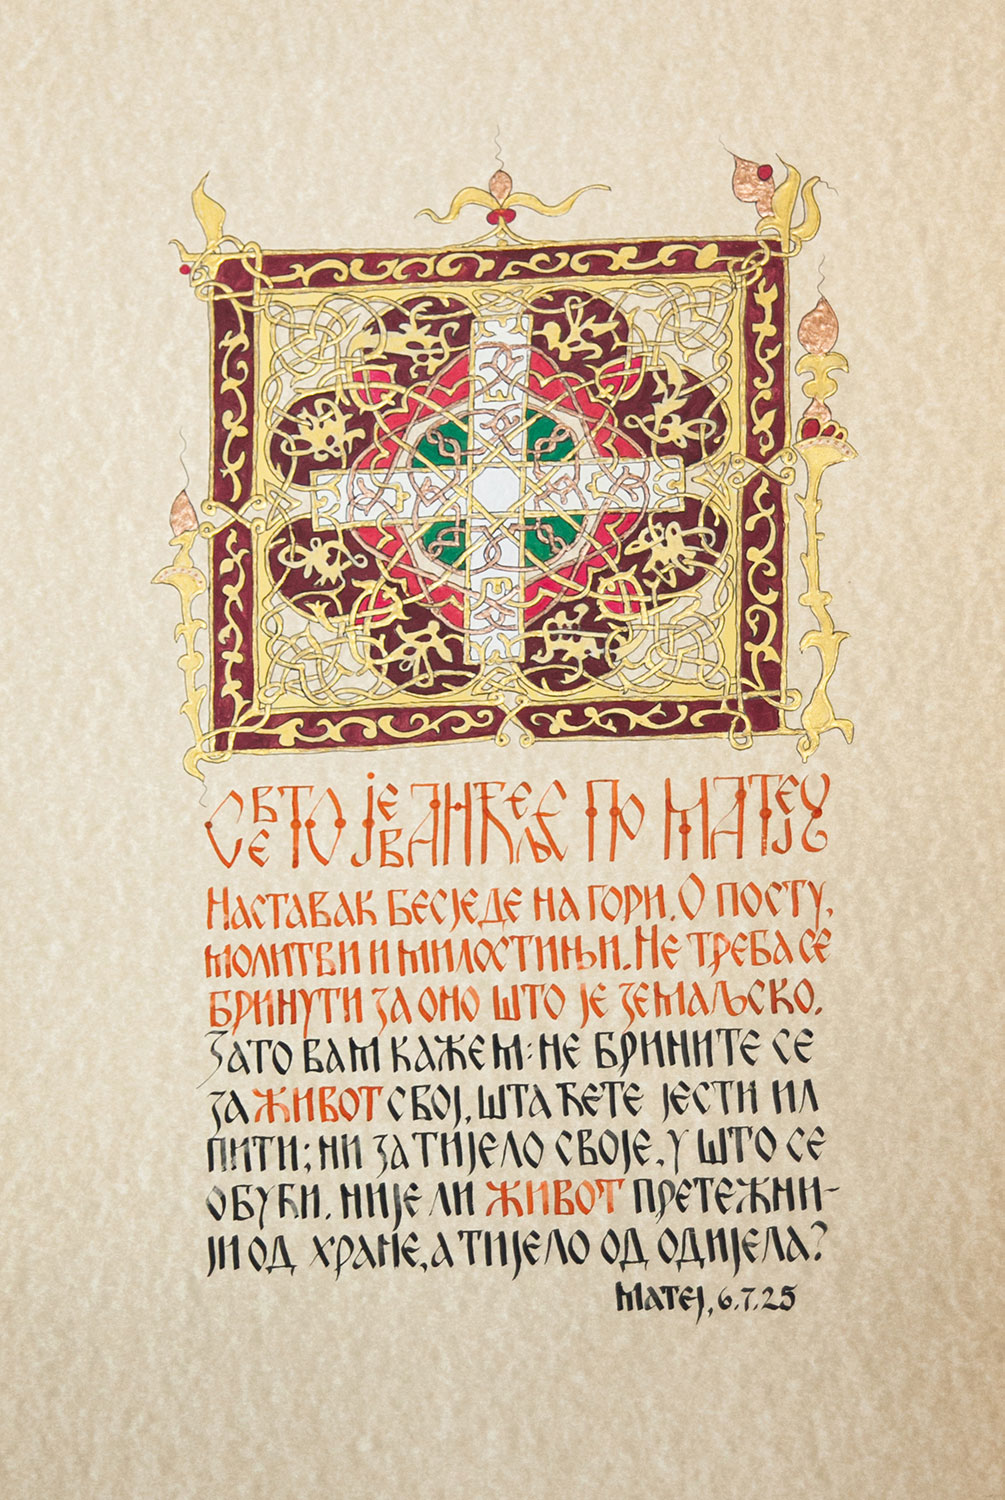 СВЕТО ЈЕВАНЂЕЉЕ ПО МАТЕЈУ
Наставак бесједе на гори. О посту,
молитви и милостињи. Не треба се
бринути за оно што је земаљско.
Зато вам кажем: не брините се
за живот свој, шта ћете јести ил
пити; ни за тијело своје, у што се
обући. Није ли живот претежни-
ји од хране, а тијело од одијела?
Матеј, 6.7.25